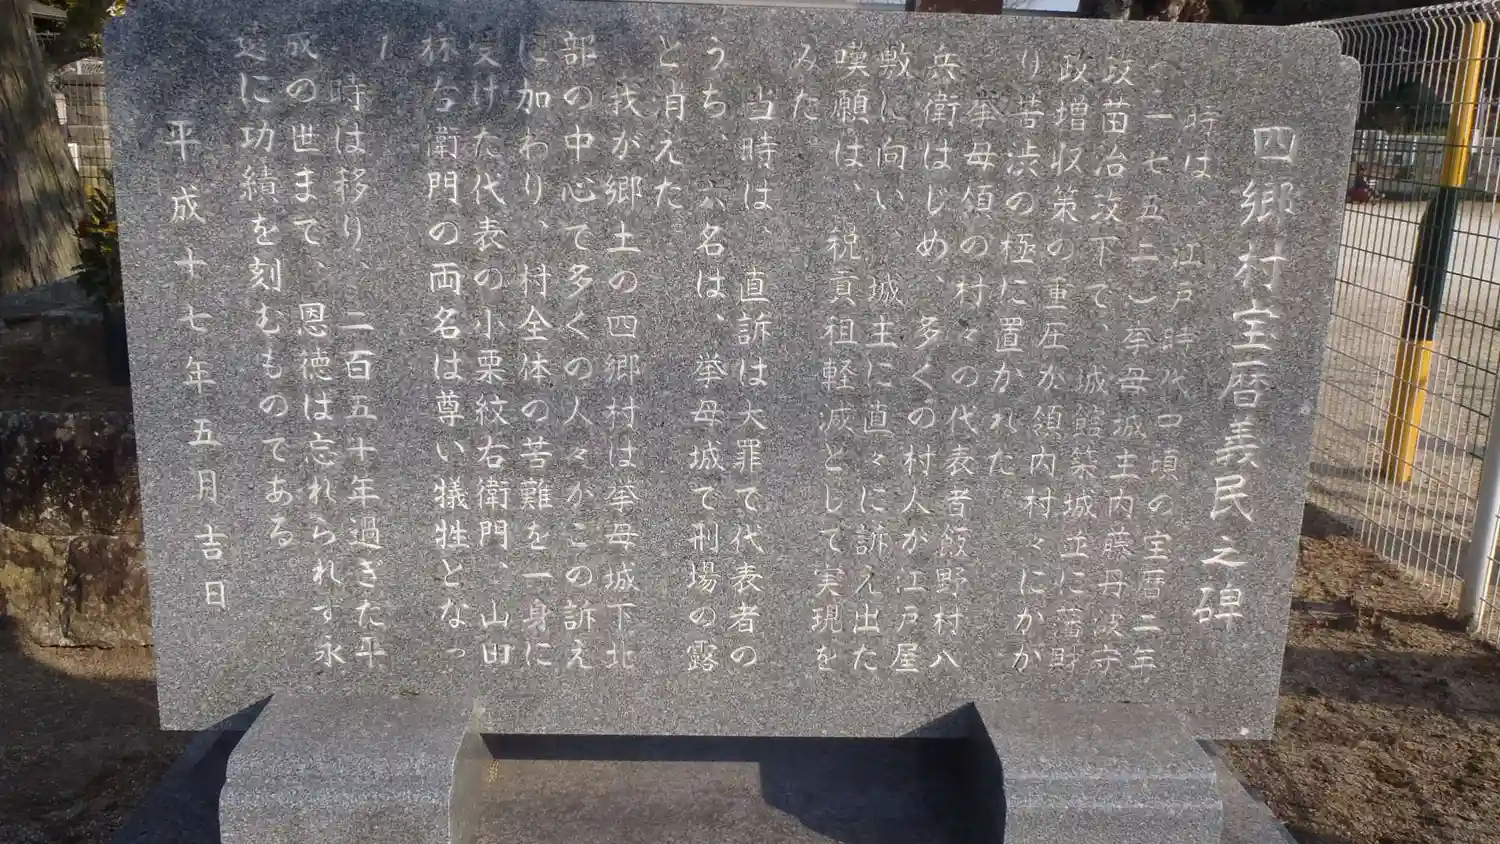 四郷村宝暦義民之碑
時は、江戸時代中頃の宝暦二年
(一七五二)挙母城主内藤丹波守
政苗治政下で、城館築城並に藩財
政増収策の重圧が領内村々にかか
り苦渋の極に置かれた
挙母領の村々の代表者飯野村八
兵衛はじめ、多くの村人が江戸屋
敷に向い、城主に直々に訴え出た
嘆願は、税貢租軽減として実現を
みた
当時は、直訴は大罪で代表者の
うち、六名は、挙母城で刑場の露
と消えた
我が郷土の四郷村は挙母城下北
部の中心で多くの人々がこの訴え
に加わり、村全体の苦難を一身に
受けた代表の小栗紋右衛門、山田
林右衛門の両名は尊い犠牲となっ
た
時は移り、二百五十年過ぎた平
成の世まで、恩徳は忘れられず永
遠に功績を刻むものである
平成十七年五月吉日